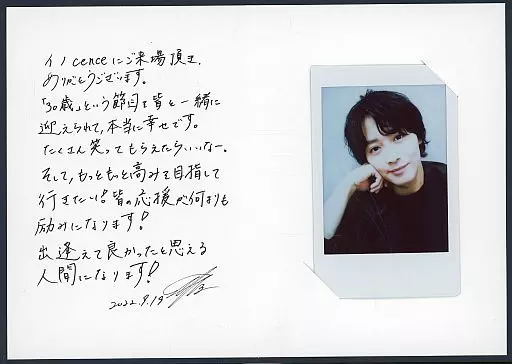 イノcenceにご来場頂き、
ありがとうございます。
「30歳」という節目を皆と一緒に
迎えられて、本当に幸せです。
たくさん笑ってもらえたらいいなー。
そして、もっともっと高みを目指して
行きたい!皆の応援が何よりも
励みになります!
出逢えて良かったと思える
人間になります!
2022.9.19